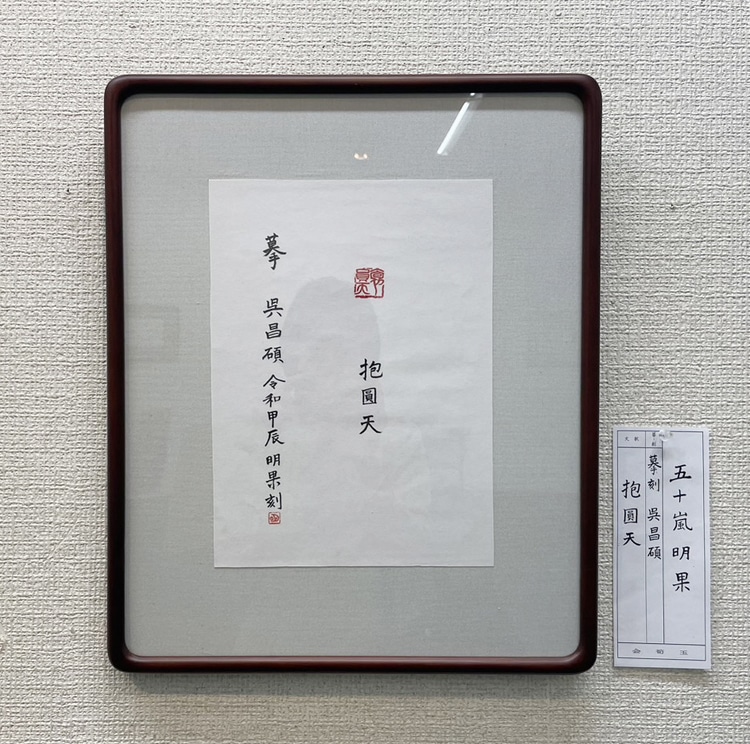 抱圓天
摹 呉昌碩 令和甲辰 明果刻
五十嵐明果
摹刻 呉昌碩
抱圓天